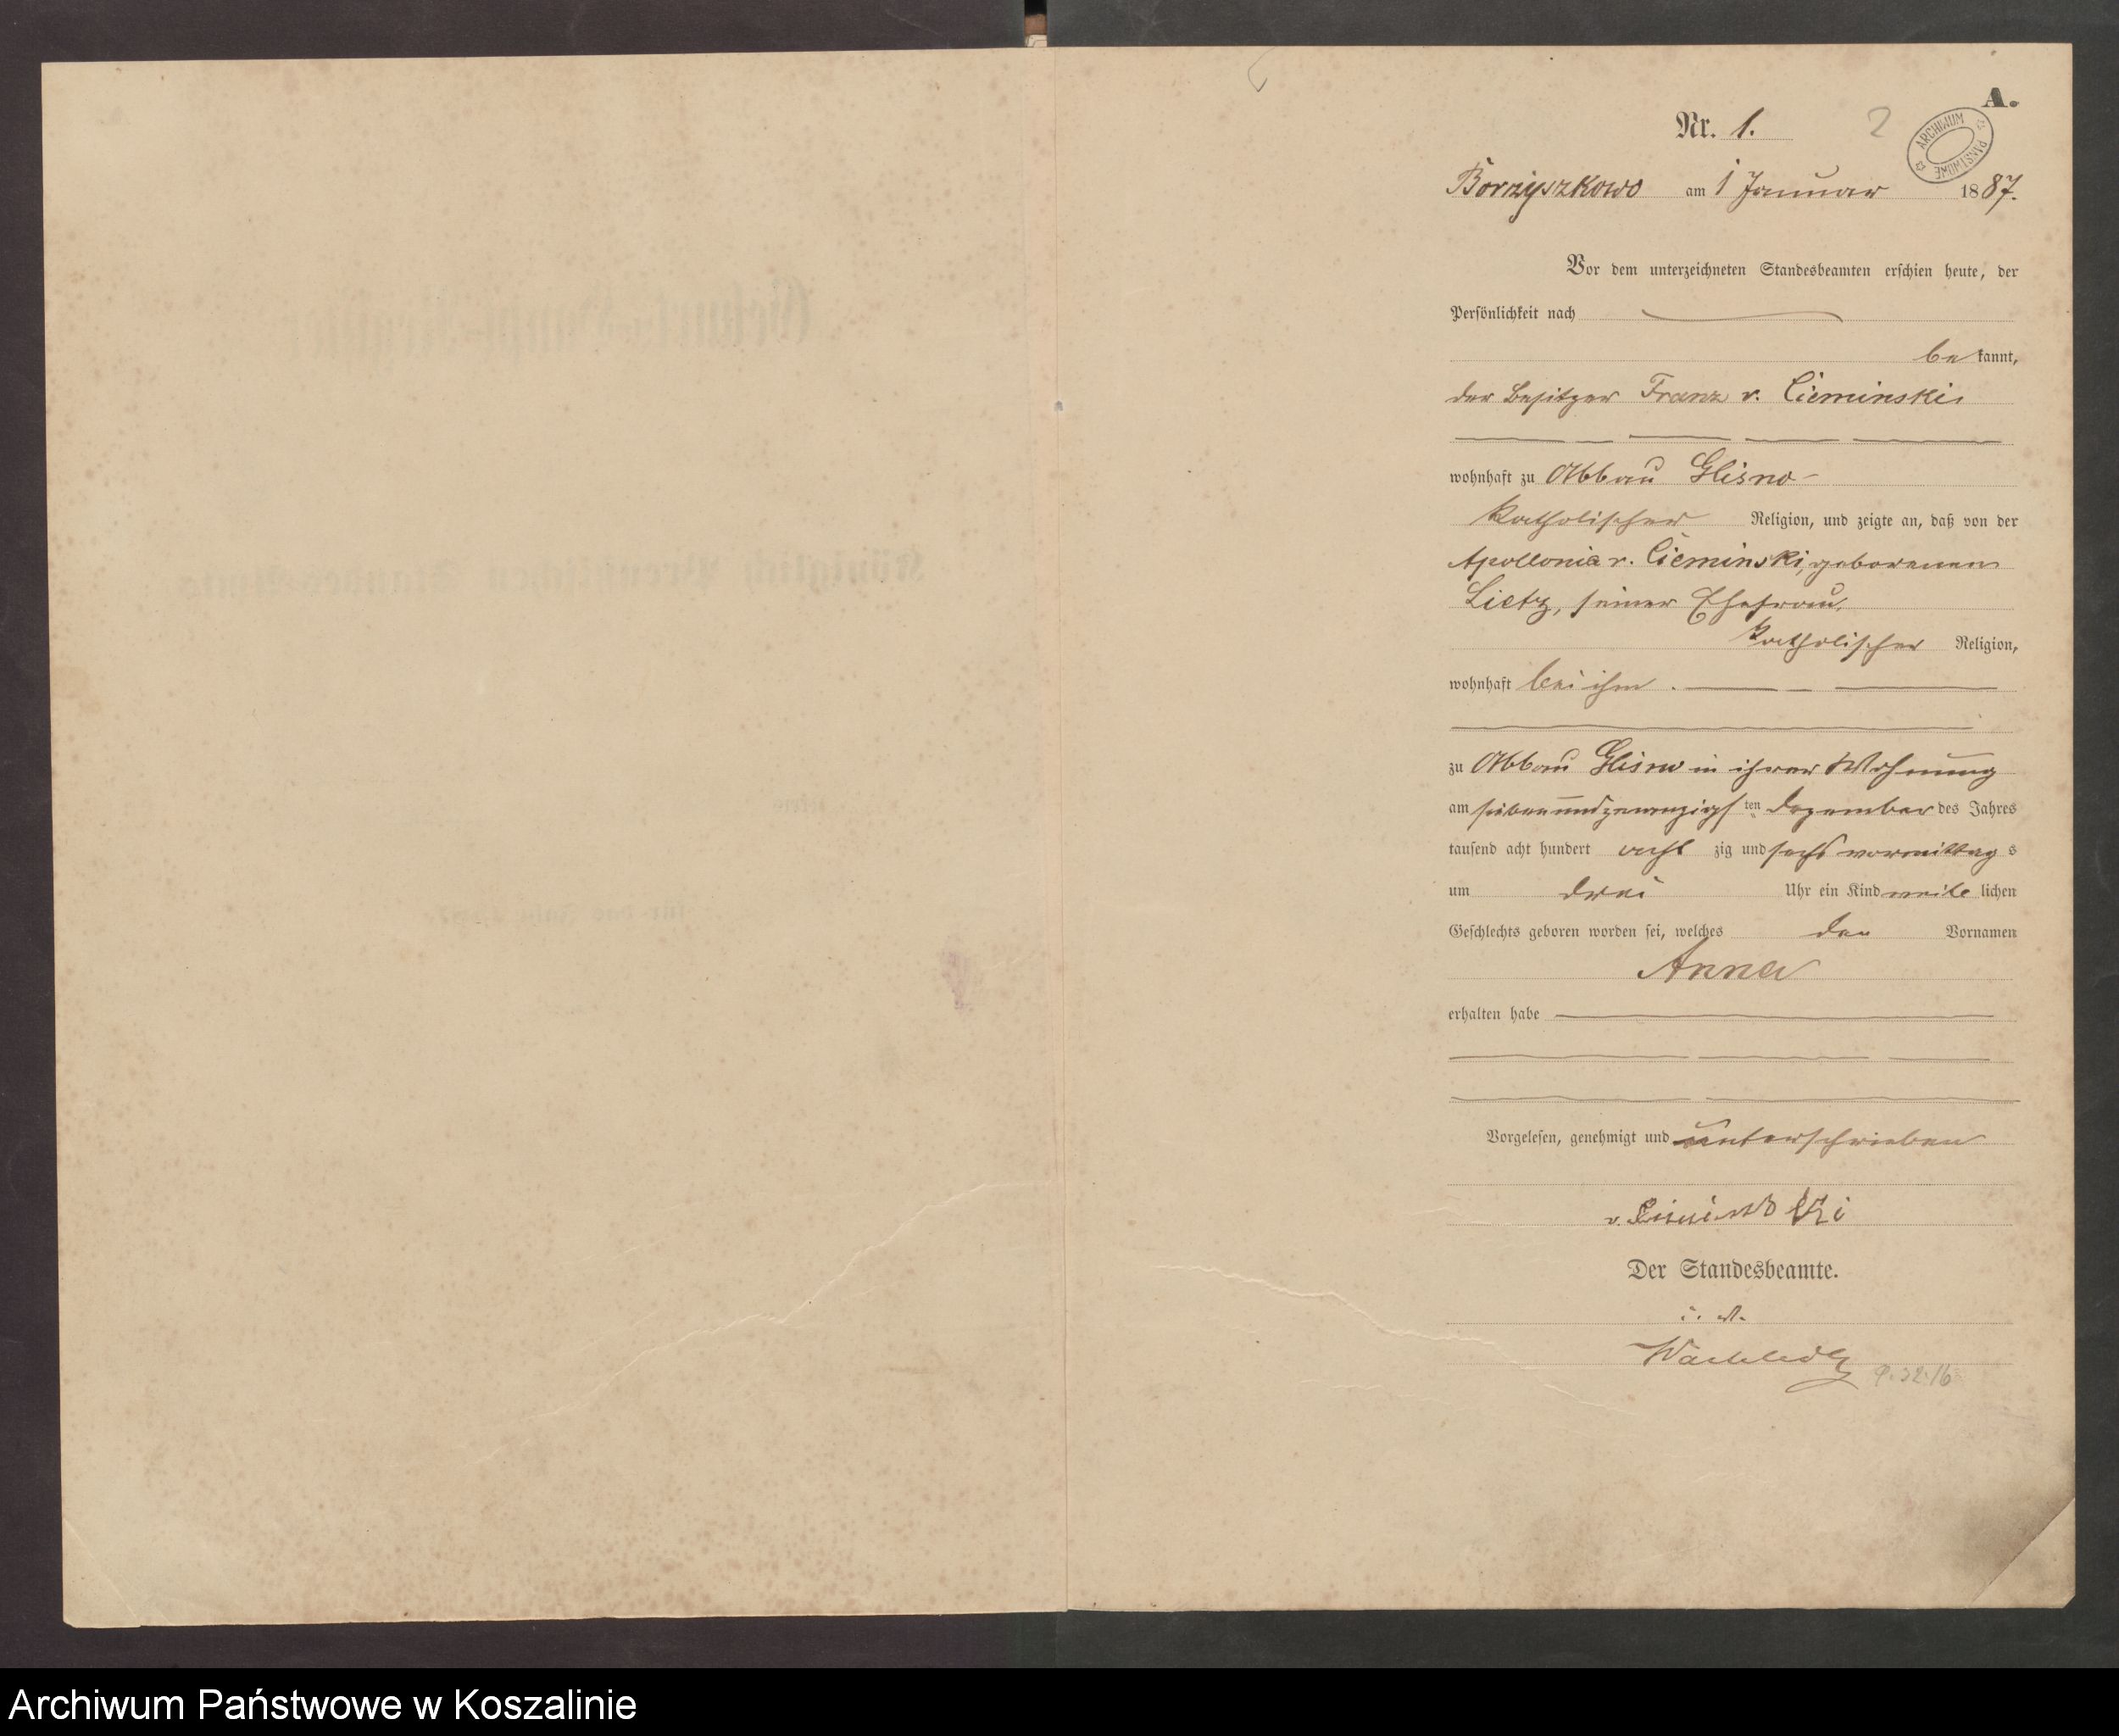 A.
Nr. 1.
2
ARCHIWUM PAŃSTWOWE
Borzyszkowo am 1 Januar 1887.
Vor dem unterzeichneten Standesbeamten erschien heute, der
Persönlichkeit nach
be kannt,
der Besitzer Franz v. Cieminski
wohnhaft zu Abbau Glisno
katholischer Religion, und zeigte an, daß von der
Apollonia v. Cieminski, geborenen
Lietz, seiner Ehefrau,
katholischer Religion,
wohnhaft bei ihm.
zu Abbau Glisno in ihrer Wohnung
am siebenundzwanzigs ten Dezember des Jahres
tausend acht hundert acht zig und sechs vormittag s
um drei Uhr ein Kind weib lichen
Geschlechts geboren worden sei, welches den Vornamen
Anna
erhalten habe
Vorgelesen, genehmigt und unterschrieben
v. Cieminski
Der Standesbeamte.
Archiwum Państwowe w Koszalinie